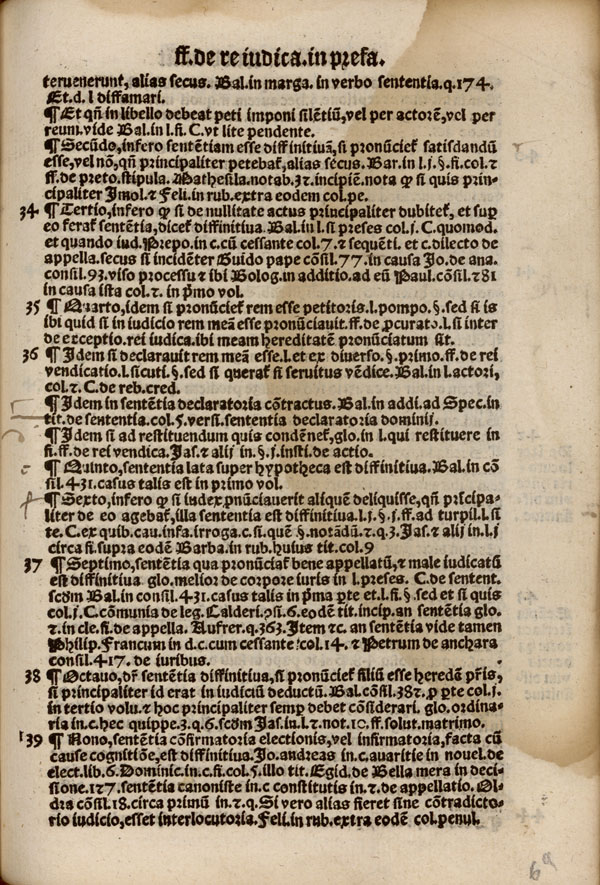 ff. de re iudica. in prefa.
teruenerunt, alias secus. Bal. in marga. in verbo sententia. q. 174.
Et. d. l diffamari.
¶ Et qñ in libello debeat peti imponi silẽtiũ, vel per actorẽ, vel per
reum. vide Bal. in l. fi. C. vt lite pendente.
¶ Secũdo, infero sentẽtiam esse diffinitiuã, si pronũcieꝭ satisdandũ
esse, vel nõ, qñ principaliter petebaꝭ, alias secus. Bar. in l. j. §. fi. col. ⁊
ff. de preto. stipula. Mathesila. notab. 3⁊ incipiẽ. nota ꝙ si quis prin-
cipaliter Imol. ⁊ Feli. in rub. extra eodem col. pe.
34 ¶ Tertio, infero ꝙ si de nullitate actus principaliter dubiteꝭ, et sup
eo feraꝭ sentẽtia, diceꝭ diffinitiua. Bal. in l. si preses col. j. C. quomod.
et quando iud. Prepo. in c. cũ cessante col. 7. ⁊ sequẽti. et c. dilecto de
appella. secus si incidẽter Guido pape cõsil. 77. in causa Jo. de ana.
consil. 93. viso processu ⁊ ibi Bolog. in additio. ad eũ Paul. cõsil. ⁊81
in causa ista col. ⁊. in p̃mo vol.
35 ¶ Quarto, idem si pronũcieꝭ rem esse petitoris. l. pompo. §. sed si is
ibi quid si in iudicio rem meã esse pronũciauit. ff. de ꝓcurato. l. si inter
de exceptio. rei iudica. ibi meam hereditatẽ pronũciatum sit.
36 ¶ Idem si declarauit rem meã esse. l. et ex diuerso. §. primo. ff. de rei
vendicatio. l. sicuti. §. sed si queraꝭ si seruitus vẽdice. Bal. in l. actori,
col. ⁊. C. de reb. cred.
¶ Idem in sentẽtia declaratoria cõtractus. Bal. in addi. ad Spec. in
tit. de sententia. col. 5. versi. sententia declaratoria dominij.
¶ Idem si ad restituendum quis condẽneꝭ, glo. in l. qui restituere in
fi. ff. de rei vendica. Jas. ⁊ alij in. §. j. insti. de actio.
¶ Quinto, sententia lata super hypotheca est diffinitiua. Bal. in cõ
sil. 4⁊31. casus talis est in primo vol.
¶ Sexto, infero ꝙ si iudex pnũciauerit aliquẽ deliquisse, qñ prĩcipa-
liter de eo agebaꝭ, illa sententia est diffinitiua. l. j. §. j. ff. ad turpil. l. si
te. C. ex quib. cau. infa. irroga. c. si. quẽ §. notãdũ ⁊. q. 3. Jas. ⁊ alij in l. j
circa fi. supra eodẽ Barba. in rub. huius tit. col. 9
37 ¶ Septimo, sentẽtia qua pronũciaꝭ bene appellatũ, ⁊ male iudicatũ
est diffinitiua glo. melior de corpore iuris in l. preses. C. de sentent.
scđm Bal. in consil. 431. casus talis in p̃ma ꝑte et l. fi. §. sed et si quis
col. j. C. cõmunia de leg. Calderi. ꝯsi. 6. eodẽ tit. incip. an sentẽtia glo.
⁊. in cle. fi. de appella. Aufrer. q. 363. Item ⁊c. an sentẽtia vide tamen
Philip. Francum in d. c. cum cessante: col. 14. ⁊ Petrum de anchara
consil. 417. de iuribus.
38 ¶ Octauo, dr̃ sentẽtia diffinitiua, si pronũcieꝭ filiũ esse heredẽ pr̃is,
si principaliter id erat in iudiciũ deductũ. Bal. cõsil. 38⁊. ꝓ ꝑte col. j.
in tertio volu. ⁊ hoc principaliter semꝑ debet cõsiderari. glo. ordina-
ria in. c. hec quippe. 3. q. 6. scđm Jas. in l. ⁊. not. 10. ff. solut. matrimo.
39 ¶ Nono, sentẽtia cõfirmatoria electionis, vel infirmatoria, facta cũ
cause cognitiõe, est diffinitiua. Jo. andreas in c. auaritie in nouel. de
elect. lib. 6. Dominic. in. c. fi. col. 5. illo tit. Egid. de Bella mera in deci-
sione. 1⁊7. sentẽtia canoniste in c constitutis in. ⁊. de appellatio. Ol-
dra cõsil. 18. circa primũ in. ⁊. q. Si vero alias fieret sine cõtradicto-
rio iudicio, esset interlocutoria. Feli. in rub. extra eodẽ col. penul.
6a